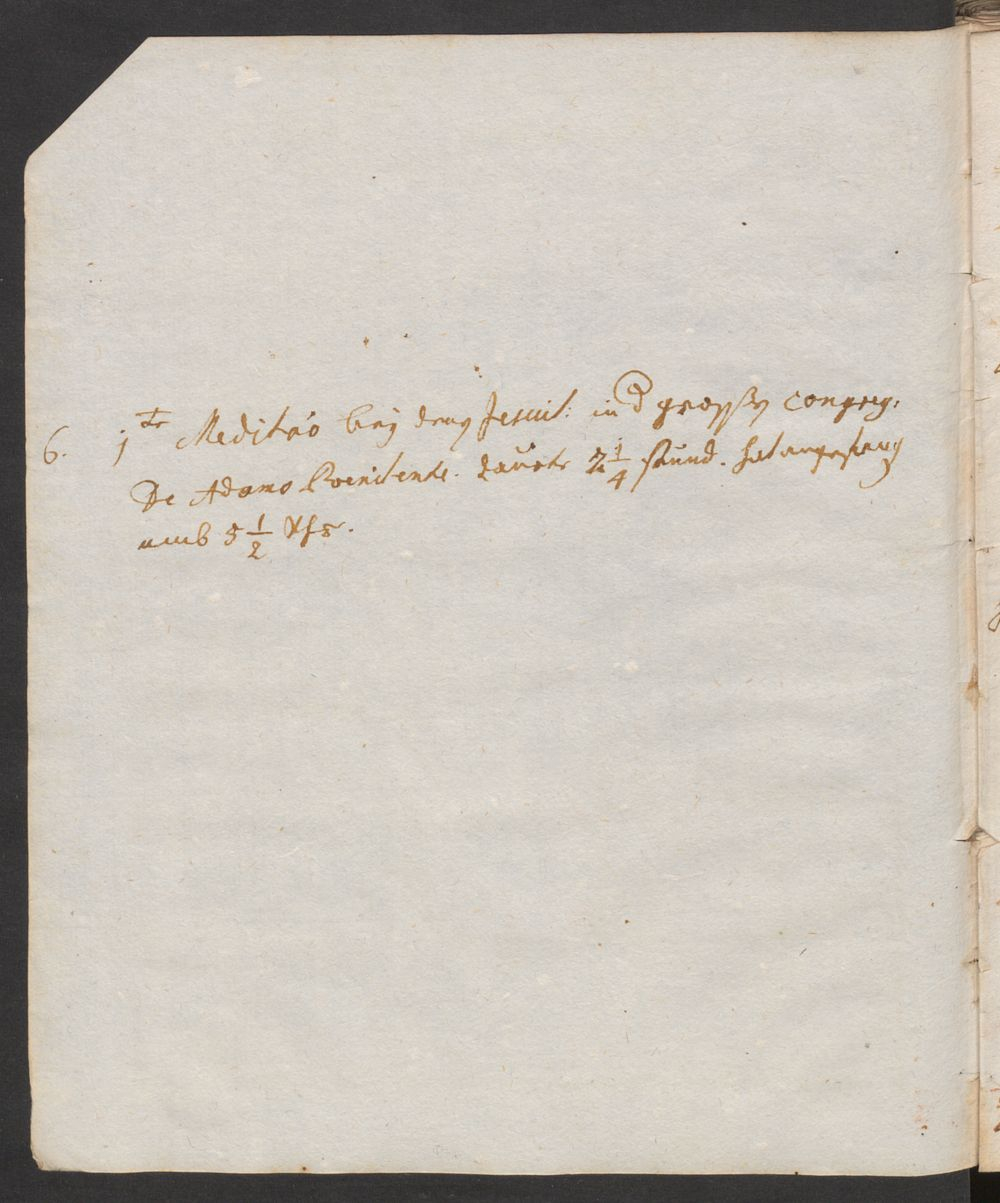 6. 1te Meditåo beÿ denen Jesuit: in d grossen congreg:
De Adamo Poenitente. dauerte 2 1/4 stund. hat angefang
umb 5 1/2 Vhr.